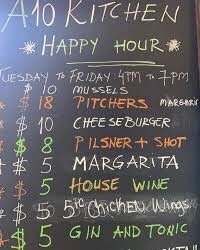 A10 KITCHEN
* HAPPY HOUR *
TUESDAY TO FRIDAY: 4PM TO 7PM
$ 10 MUSSELS
* $ 18 PITCHERS
* $ 10 CHEESEBURGER
$ 8 PILSNER + SHOT
$ 5 MARGARITA
* $ 5 HOUSE WINE
* $ 5 CHICKEN WINGS
* $ 5 GIN AND TONIC